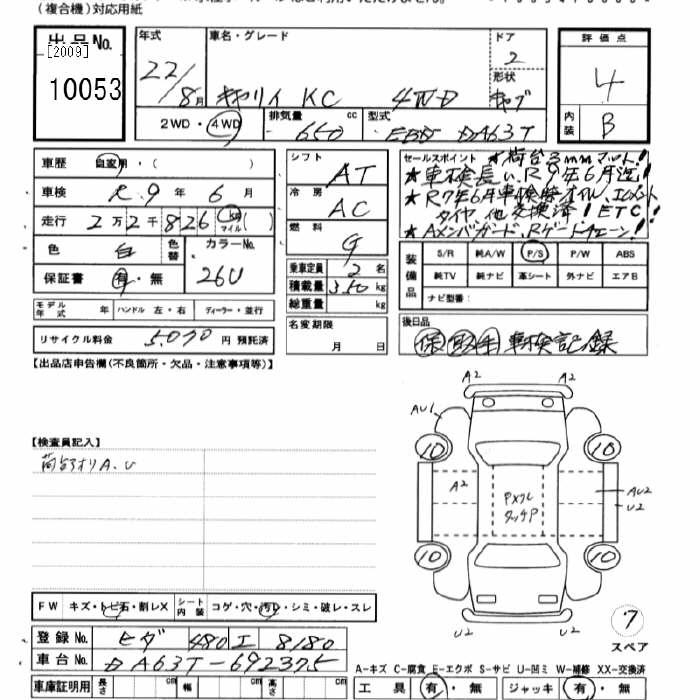 (複合機)対応用紙
出品No. [2009] 10053
年式 22/8月
車名・グレード キャリイ KC 4WD
ドア 2
形状 キャブ
評価点 4
内装 B
2WD・4WD
排気量 650 cc
型式 EBD DA63T
車歴 自家用・( )
車検 R 9 年 6 月
走行 2万2千826 km マイル ( )
色 白 色替 カラーNo. 26U
保証書 有・無
シフト AT
冷房 AC
燃料 G
乗車定員 2 名
積載量 350 kg
総重量 kg
セールスポイント ★荷台3mmマット!
★車検長い、R9年6月迄!
★R7年6月車検時オイル、エレメント
タイヤ、他交換済!ETC!
★Aメンバガード、Rゲートチェーン!
装備品 S/R 純A/W P/S P/W ABS
純TV 純ナビ 革シート 外ナビ エアB
ナビ型番:
モデル年式 年 ハンドル 左・右 ディーラー・並行
リサイクル料金 5,070 円 預託済
名変期限 月 日
後日品 保 取 車検記録
【出品店申告欄(不良箇所・欠品・注意事項等)】
【検査員記入】
荷台アオリA、U
A2 A2
AU1
10 10
A2 AU2
U2
10 10
U2 U2
7
スペア
FW キズ・トビ石・割レX シート内装 コゲ・穴・汚レ・シミ・破レ・スレ
登録No. ヒダ 480 エ 8180
車台No. DA63T-692375
A-キズ C-腐食 E-エクボ S-サビ U-凹ミ W-補修 XX-交換済
車庫証明用 長さ cm 幅 cm 高さ cm
工具 有・無 ジャッキ 有・無